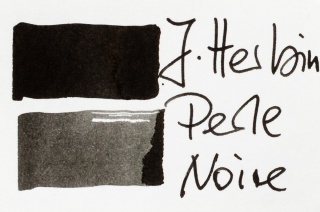 J. Herbin
Perle
Noire